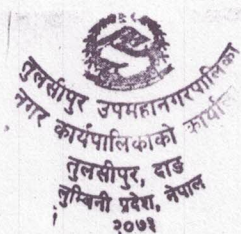 तुलसीपुर उपमहानगरपालिका
नगर कार्यपालिकाको
तुलसीपुर, दाङ
लुम्बिनी प्रदेश, नेपाल
२०७३